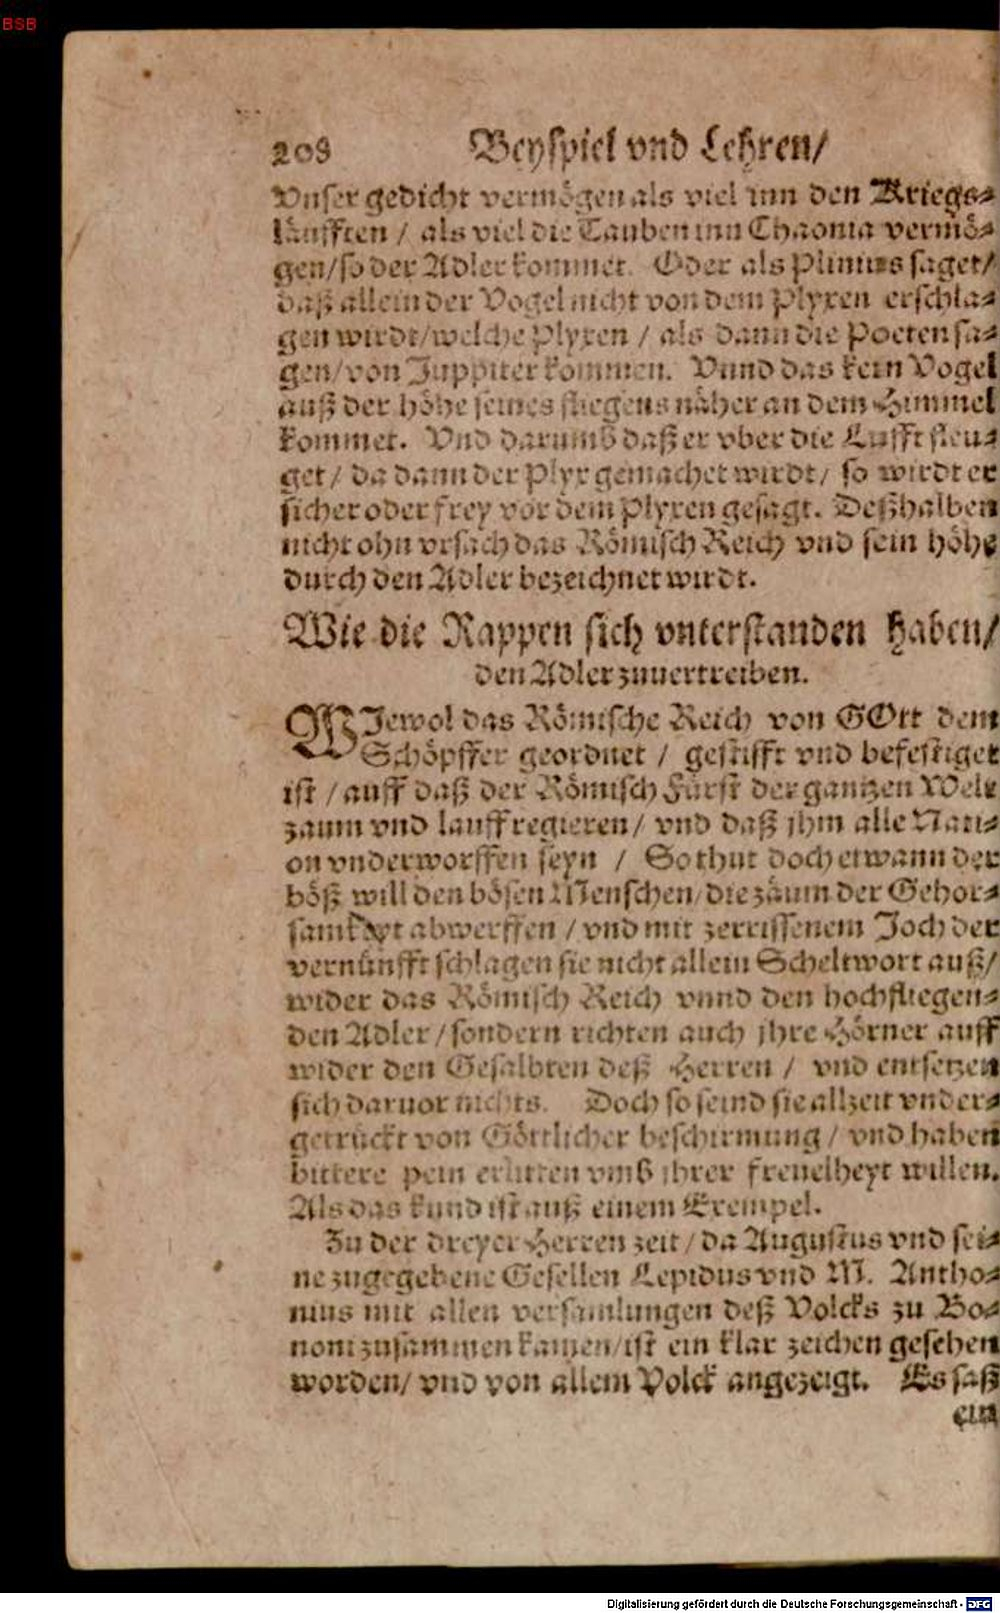 BSB
208 Beyspiel vnd Lehren/
Vnser gedicht vermögen als viel inn den Kriegs-
läufften / als viel die Tauben inn Chaonia vermö-
gen/so der Adler kommet. Oder als Plinius saget/
daß allein der Vogel nicht von dem Plyxen erschla-
gen wirdt/welche Plyxen / als dann die Poeten sa-
gen/von Juppiter kommen. Vnnd das kein Vogel
auß der höhe seines fliegens näher an dem Himmel
kommet. Vnd darumb daß er vber die Lufft fleu-
get / da dann der Plyx gemachet wirdt/ so wirdt er
sicher oder frey vor dem Plyxen gesagt. Deßhalben
nicht ohn vrsach das Römisch Reich vnd sein höhe
durch den Adler bezeichnet wirdt.
Wie die Rappen sich vnterstanden haben/
den Adler zuuertreiben.
WJewol das Römische Reich von GOtt dem
Schöpffer geordnet / gestifft vnd befestiget
ist / auff daß der Römisch Fürst der gantzen Welt
zaum vnd lauff regieren/ vnd daß jhm alle Nati-
on vnderworffen seyn / So thut doch etwann der
böß will den bösen Menschen/die zäum der Gehor-
samkeyt abwerffen / vnd mit zerrissenem Joch der
vernünfft schlagen sie nicht allein Scheltwort auß/
wider das Römisch Reich vnnd den hochfliegen-
den Adler / sondern richten auch jhre Hörner auff
wider den Gesalbten deß Herren / vnd entsetzen
sich daruor nichts. Doch so seind sie allzeit vnder-
getruckt von Göttlicher beschirmung / vnd haben
bittere pein erlitten vmb ihrer freuelheyt willen.
Als das kund ist auß einem Exempel.
Zu der dreyer Herren zeit / da Augustus vnd sei-
ne zugegebene Gesellen Lepidus vnd M. Antho-
nius mit allen versamlungen deß Volcks zu Bo-
noni zusammen kamen/ist ein klar zeichen gesehen
worden/ vnd von allem Volck angezeigt. Es saß
ein
Digitalisierung gefördert durch die Deutsche Forschungsgemeinschaft - DFG